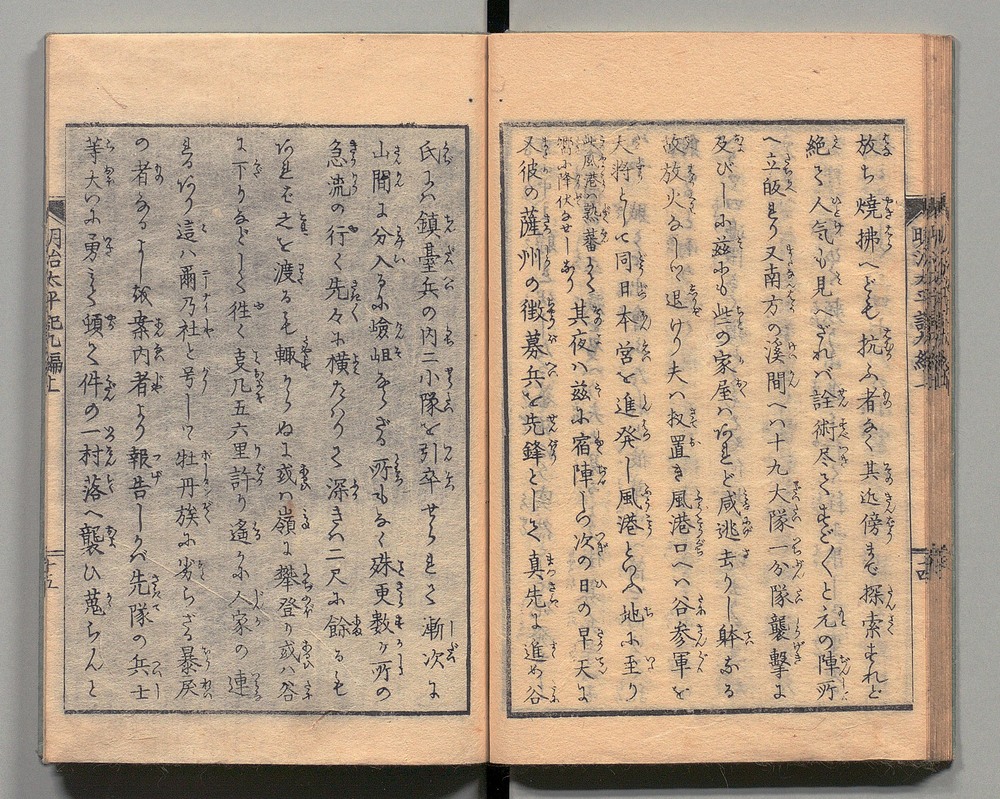 放ち焼拂へども抗ふ者なく其近傍まで探索すれど
絶て人気も見へざれバ詮術尽きてすご〱と元の陣所
へ立皈れり又南方の溪間へハ十九大隊一分隊襲撃に
及びしに茲にも些の家屋ハあれど咸逃去りし躰なる
故放火なしつゝ退けり夫ハ扨置き風港口へハ谷参軍を
大将として同日本営を進発し風港といふ地に至り
此風港の熟蕃ハ
嚮に降伏なせしあり
其夜ハ茲に宿陣し次の日の早天に
又彼の薩州の徴募兵を先鋒として真先に進め谷
氏にハ鎮臺兵の内二小隊を引卒せられて漸次に
山間に分入るに嶮岨ならざる所もなく殊更数ヶ所の
急流の行く先々に横たハりて深きハ二尺に餘るも
あれど之を渡るも輙からぬに或ハ嶺に攀登り或ハ谷
に下りなどして徃く支凡五六里許り遙に人家の連
るあり這ハ爾乃社と号しつゝ牡丹族に劣らざる暴戻
の者なるよし哉案内者より報告しかバ先隊の兵士
等大いに勇立て頓て件の一村落へ襲ひ蒐らんと
明治太平記九編上
十四
明治太平記九編上
十五